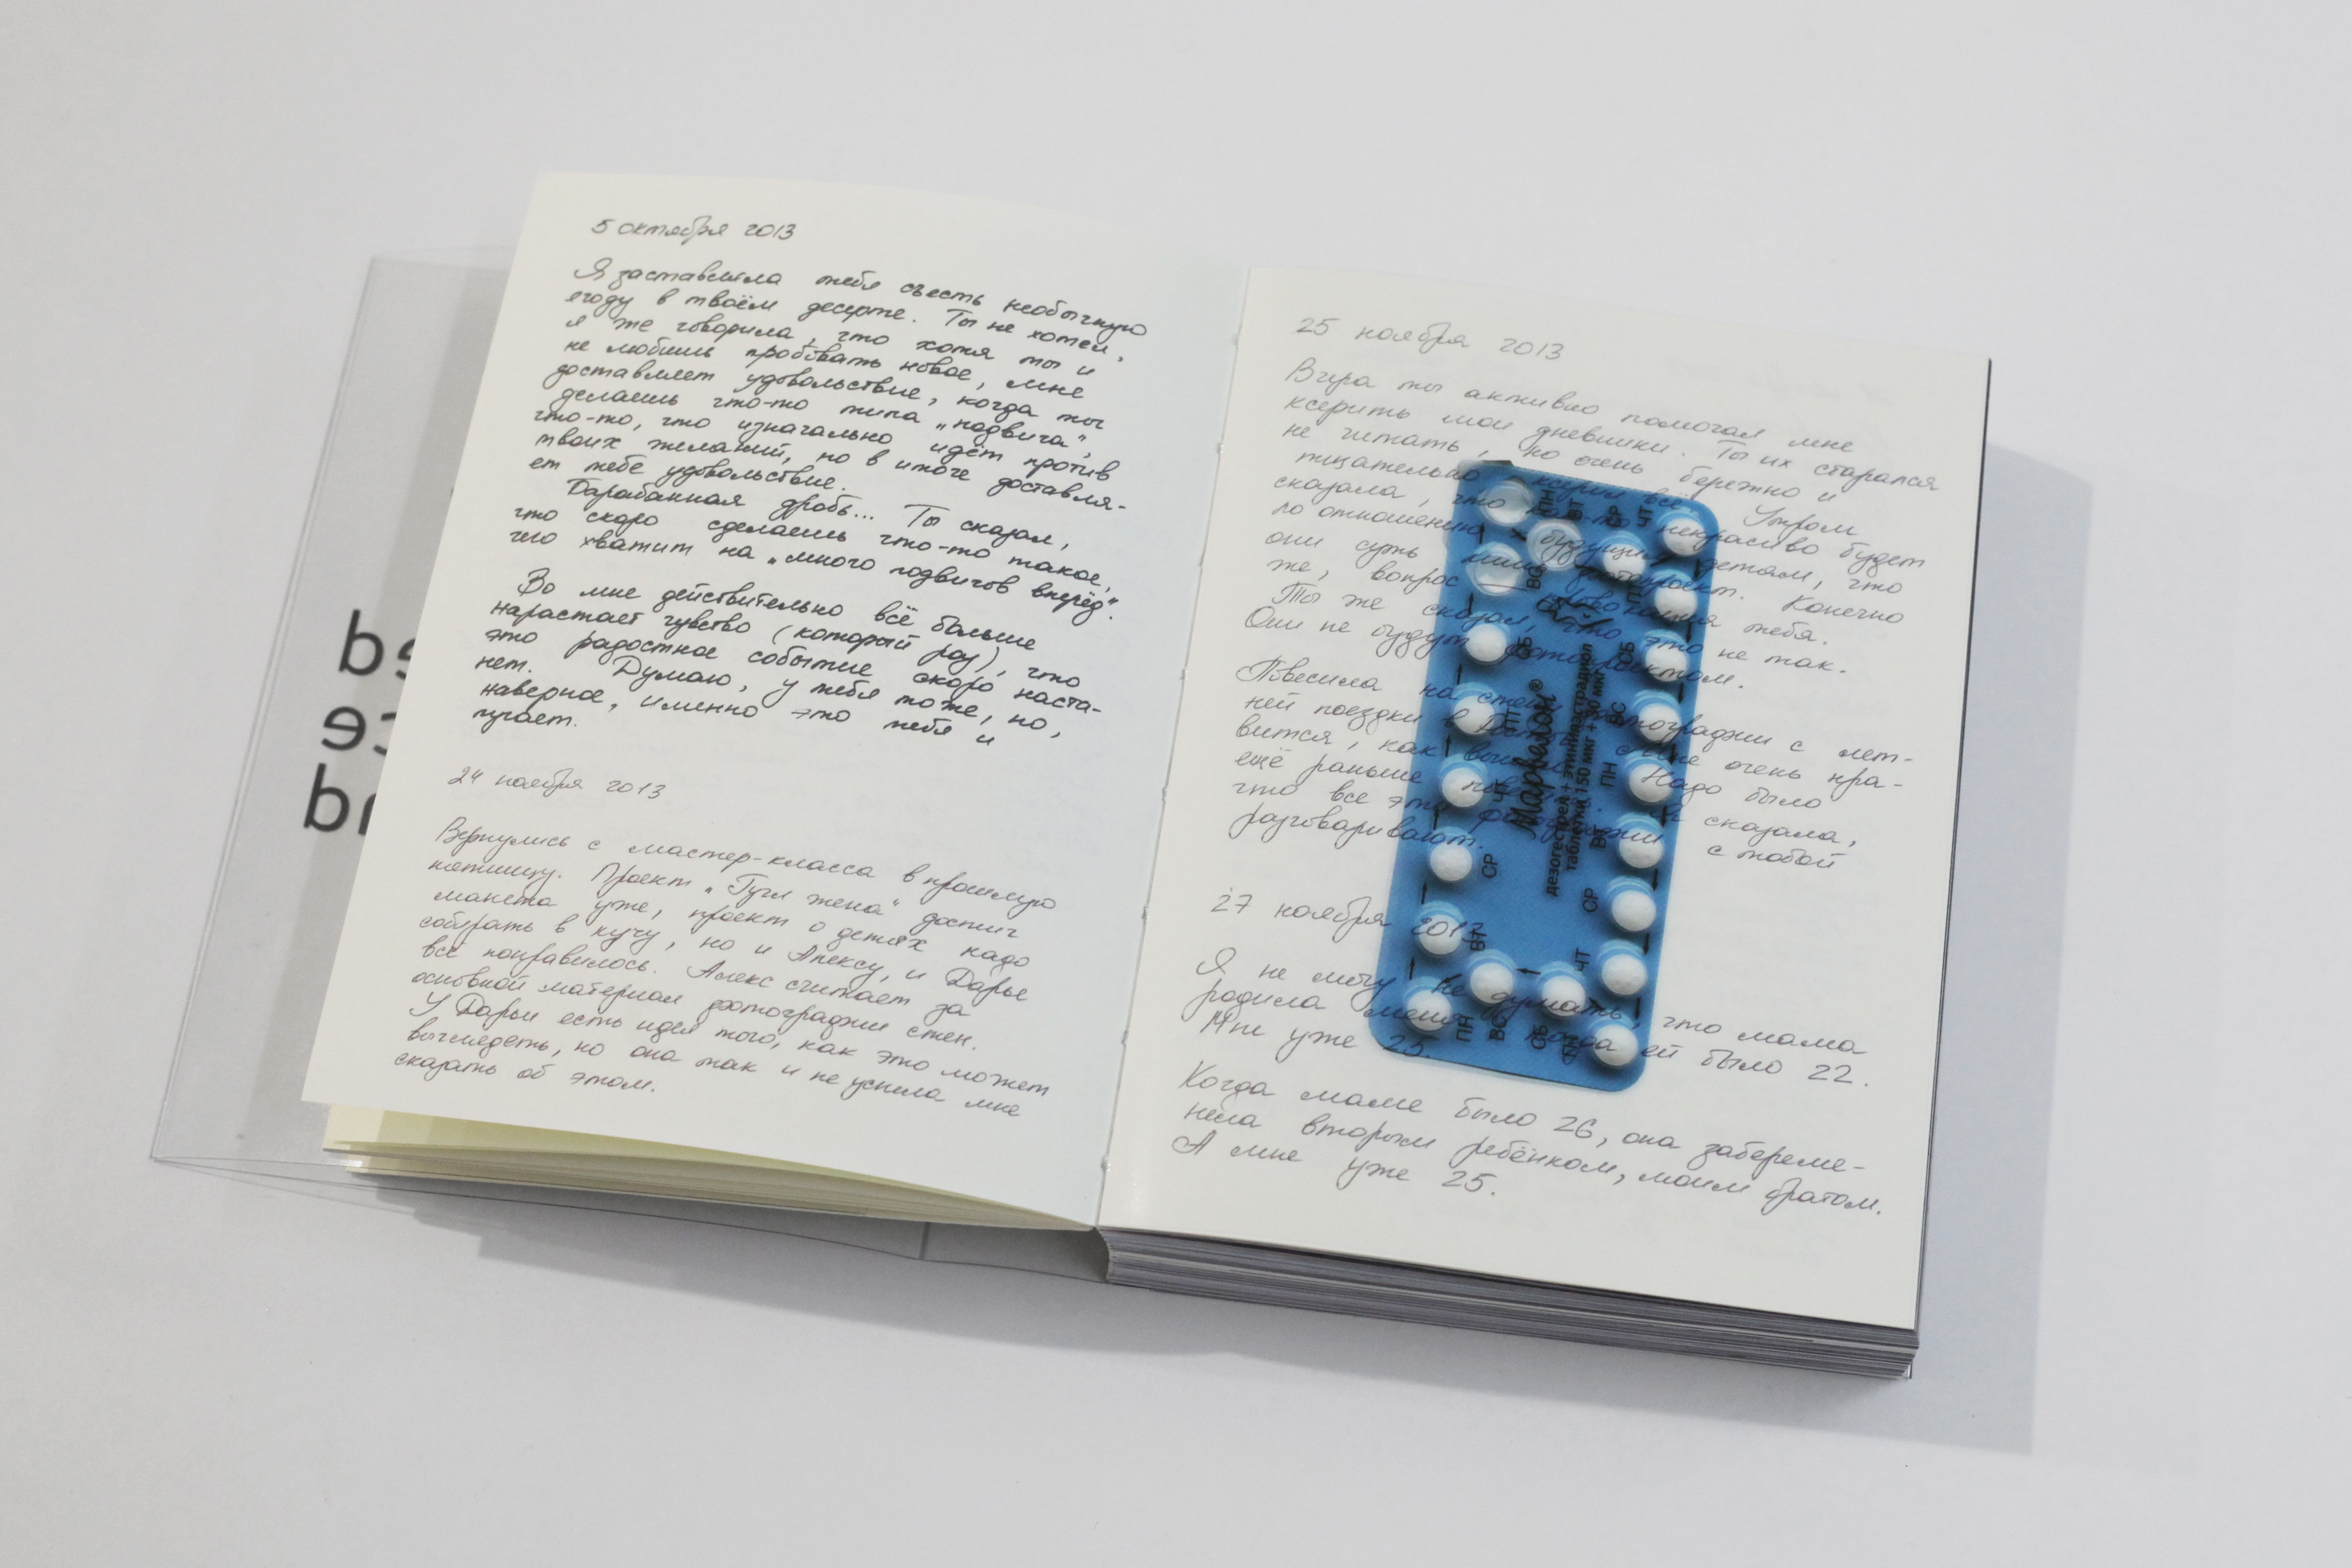 5 октября 2013
Я заставляла тебя съесть необычную
ягоду в твоём десерте. Ты не хотел,
я же говорила, что хотя ты и
не любишь пробовать новое, мне
доставляет удовольствие, когда ты
делаешь что-то типа „подвига“,
что-то, что изначально идёт против
твоих желаний, но в итоге доставля-
ет тебе удовольствие.
Барабанная дробь... Ты сказал,
что скоро сделаешь что-то такое,
чего хватит на „много подвигов вперёд“.
Во мне действительно всё больше
нарастает чувство (который раз), что
это радостное событие скоро наста-
нет. Думаю, у тебя тоже, но,
наверное, именно это тебя и
пугает.
24 ноября 2013
Вернулись с мастер-класса в прошлую
пятницу. Проект „Гугл жена“ достиг
макета уже, проект о детях надо
собирать в кучу, но и Алексу, и Дарье
всё понравилось. Алекс считает за
основной материал фотографии стен.
У Дарьи есть идея того, как это может
выглядеть, но она так и не успела мне
сказать об этом.
25 ноября 2013
Вчера ты активно помогал мне
ксерить мои дневники. Ты их старался
не читать, но очень бережно и
тщательно ксерил всё. Утром
сказала, что как-то некрасиво будет
по отношению к будущим детям, что
они суть лишь фотопроект. Конечно
же, вопрос провокация тебя.
Ты же сказал, что это не так.
Они не будут фотопроектом.
Повесила на стены фотографии с лет-
ней поездки в Мне очень нра-
вится, как Надо было
ещё раньше повесить. Я сказала,
что все эти фотографии с тобой
разговаривают.
27 ноября 2013
Я не могу не думать, что мама
родила меня, когда ей было 22.
Мне уже 25.
Когда маме было 26, она забереме-
нела вторым ребёнком, моим братом.
А мне уже 25.
Марвелон®
дезогестрел + этинилэстрадиол
таблетки 150 мкг + 30 мкг
ПН ВТ СР ЧТ
ПТ СБ ВС ПН ВТ СР ЧТ
ВС СБ ПТ ЧТ СР ВТ ПН ВС СБ ПТ